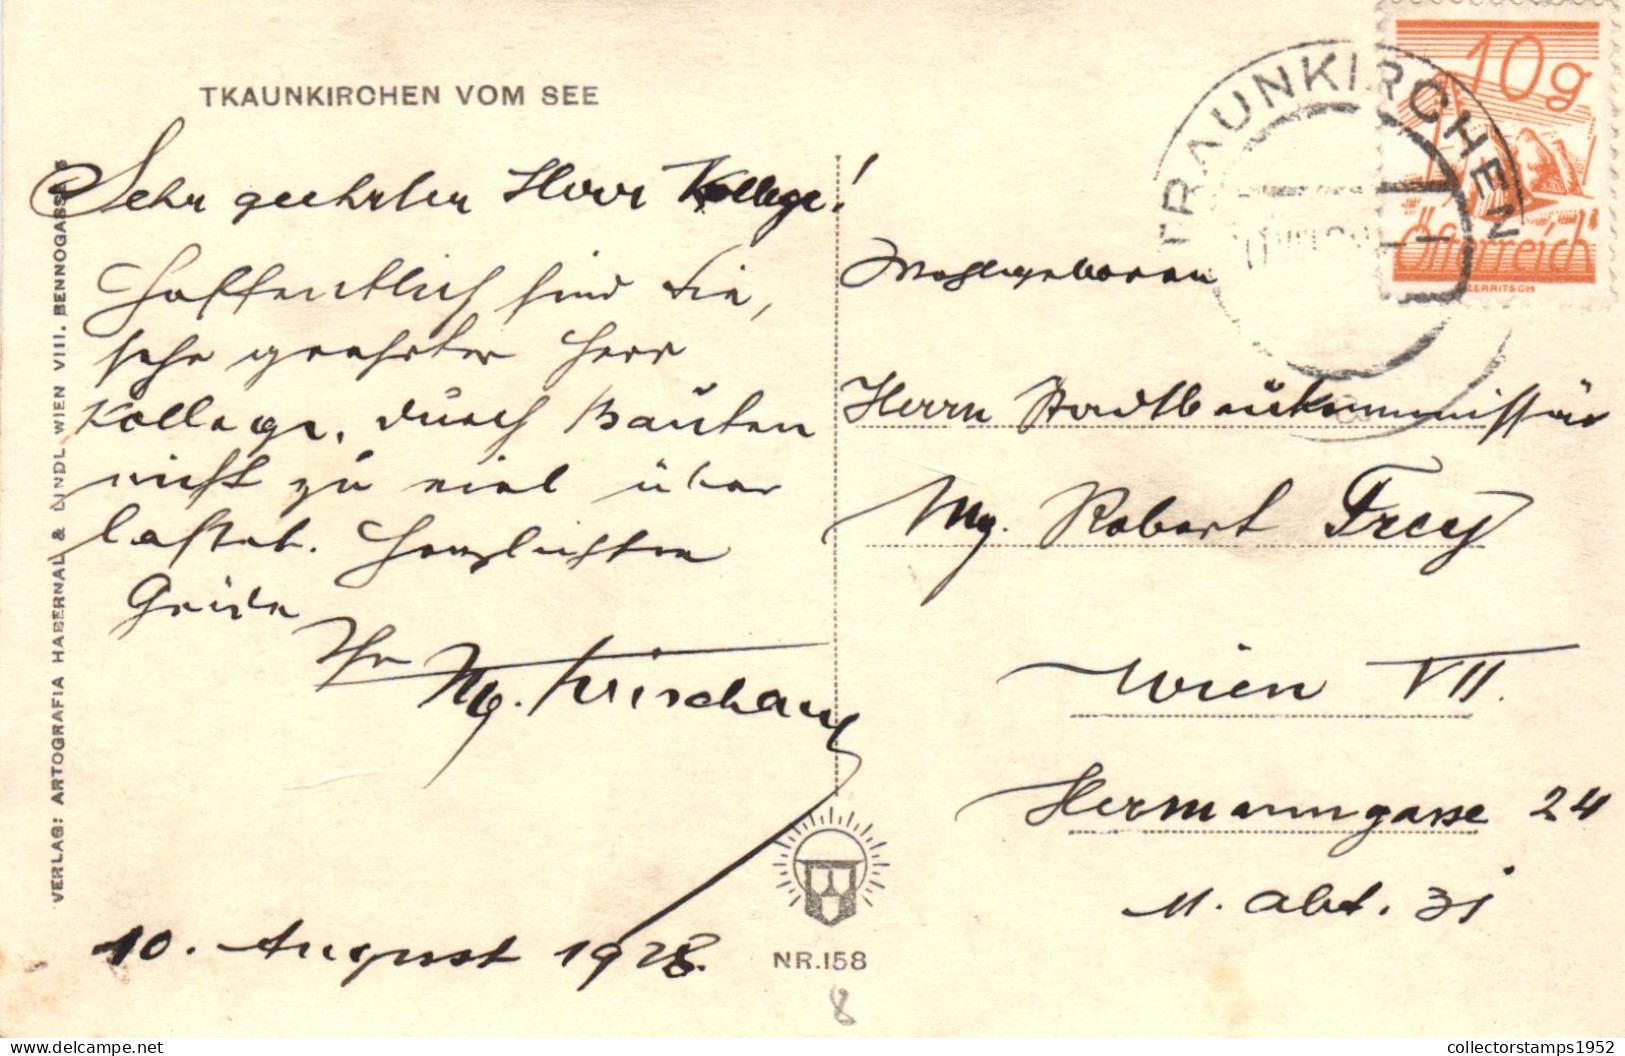 TKAUNKIRCHEN VOM SEE
Sehr geehrter Herr Kollege!
Hoffentlich sind Sie,
sehr geehrter Herr
Kollege, durch Bauten
nicht zu viel über
lastet. Herzlichsten
Ihr
Mg.
10. August 1928.
VERLAG: ARTOGRAFIA HABERNAL & LINDL WIEN VIII. BENNOGASSE
NR.158
8
TRAUNKIRCHEN
10g
Österreich
ZERRITSCH
Wohlgeboren
Herrn Stadtbaukommissär
Mg. Robert Frey
Wien VII.
Hermanngasse 24
M. Abt. 31
delcampe.net
collectorstamps1952